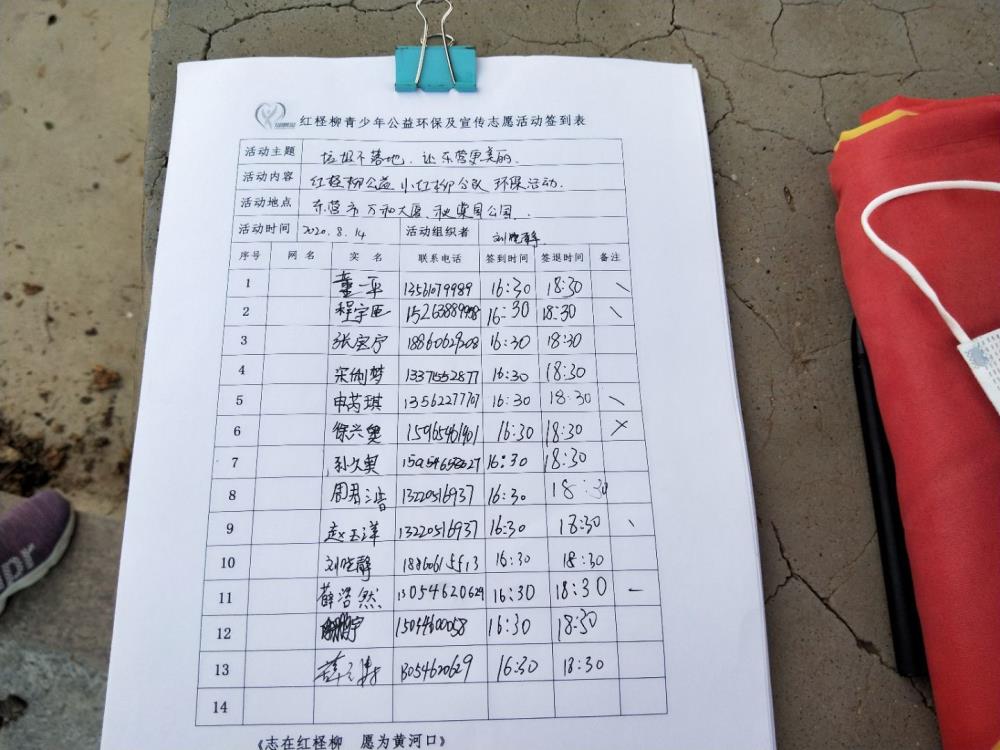 红柽柳青少年公益环保及宣传志愿活动签到表
活动主题 垃圾不落地，让东营更美丽。
活动内容 红柽柳公益 小红柳分队 环保活动.
活动地点 东营市万和大厦.
活动时间 2020.8.14 活动组织者 刘晓静
序号 网名 实名 联系电话 签到时间 签退时间 备注
1 董一平 13561079989 16:30 18:30 \
2 程宇 16:30 18:30 \
3 张宝宁 16:30 18:30
4 宋俐梦 16:30 18:30
5 申芮琪 16:30 18:30 \
6 徐兴奥 16:30 18:30 ×
7 孙久奥 16:30 18:30
8 周君 13220516937 16:30 18:30
9 赵玉洋 13220516937 16:30 18:30 \
10 刘晓静 16:30 18:30
11 薛浩然 13054620629 16:30 18:30 –
12 宇 16:30 18:30
13 13054620629 16:30 18:30
14
《志在红柽柳 愿为黄河口》